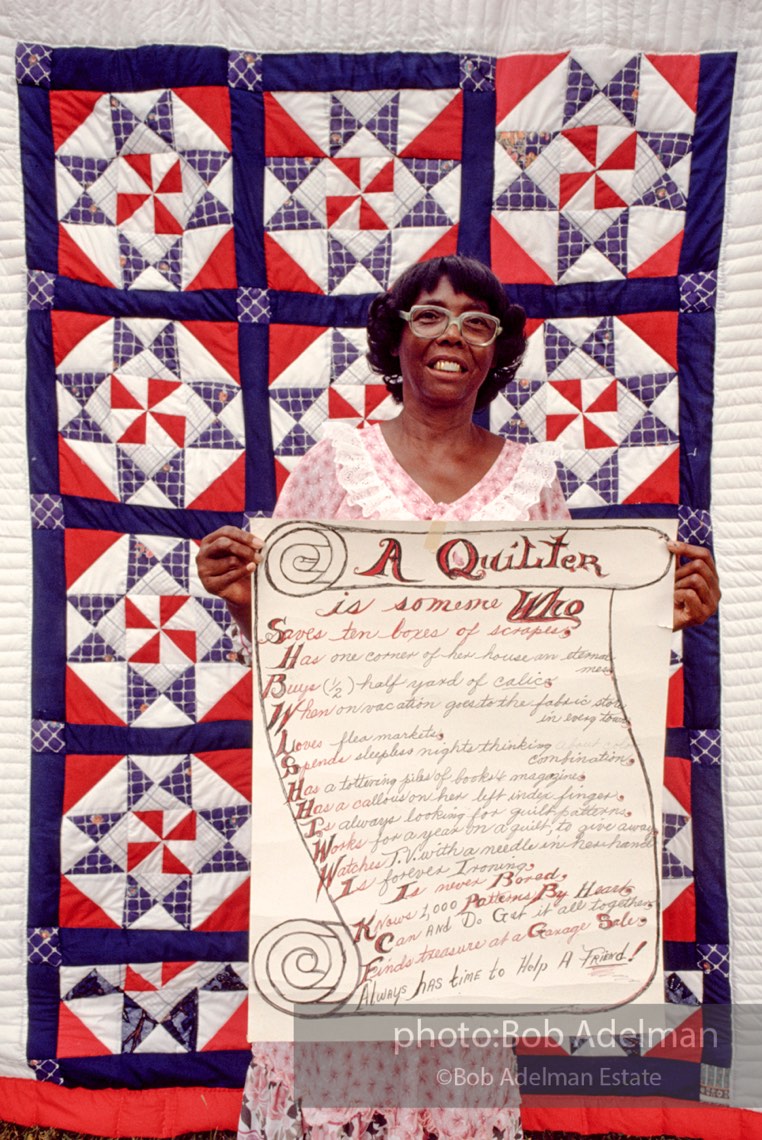 A Quilter
is someone Who
Saves ten boxes of scrapes.
Has one corner of her house an eternal
mess
Buys (1/2) half yard of calico
When on vacation goes to the fabric store
in every town
Loves flea markets.
Spends sleepless nights thinking about color
combination.
Has a tottering piles of books & magazines.
Has a callous on her left index finger.
Is always looking for quilt patterns.
Works for a year on a quilt, to give away
Watches T.V. with a needle in her hand
Is forever Ironing.
Is never Bored.
Knows 1,000 Patterns By Heart.
Can AND Do Get it all together
Finds treasure at a Garage Sale.
Always has time to Help A Friend!
photo:Bob Adelman
©Bob Adelman Estate